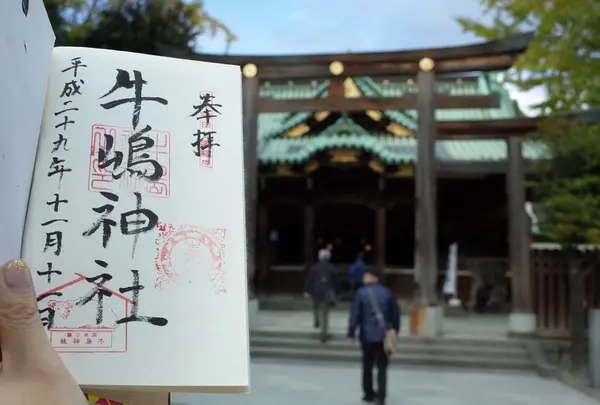 奉拝
牛嶋神社
平成二十九年十一月十一日